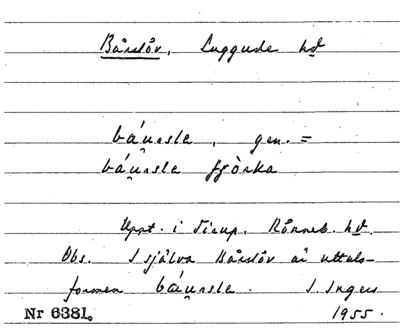 Bårslöv, Luggude hd
báu̯rslə, gen. =
báu̯rslə
Uppt. i Tirup, Rönneb. hd.
Obs. I själva Bårslöv är uttals-
formen báu̯rslə. I. Ingers
Nr 6381. 1955.